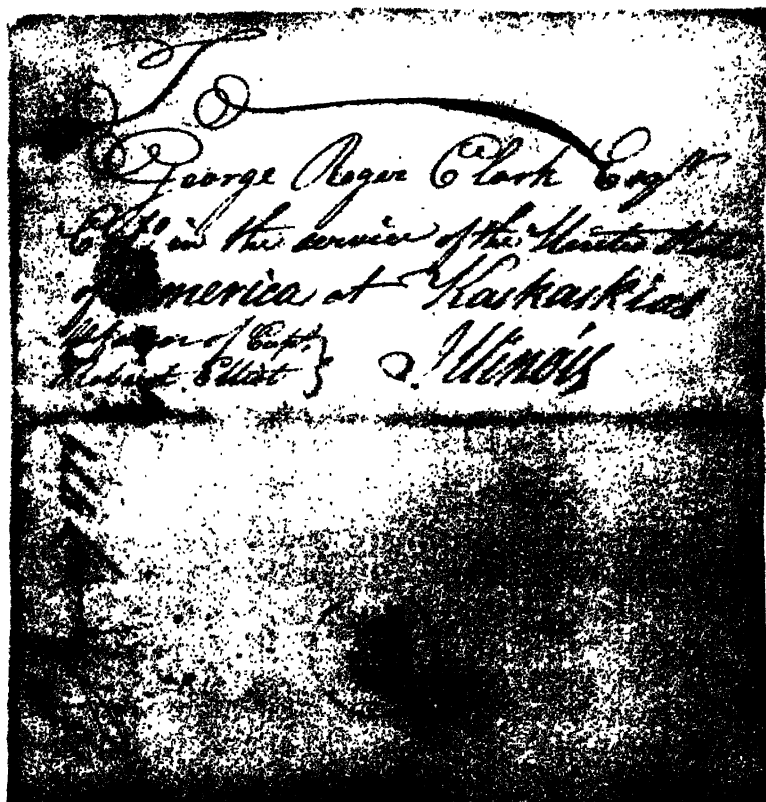 To
George Roger Clark Esqr
in the service of the United States
of America at Kaskaskias
of Capt.
Robert Elliot } Illinois